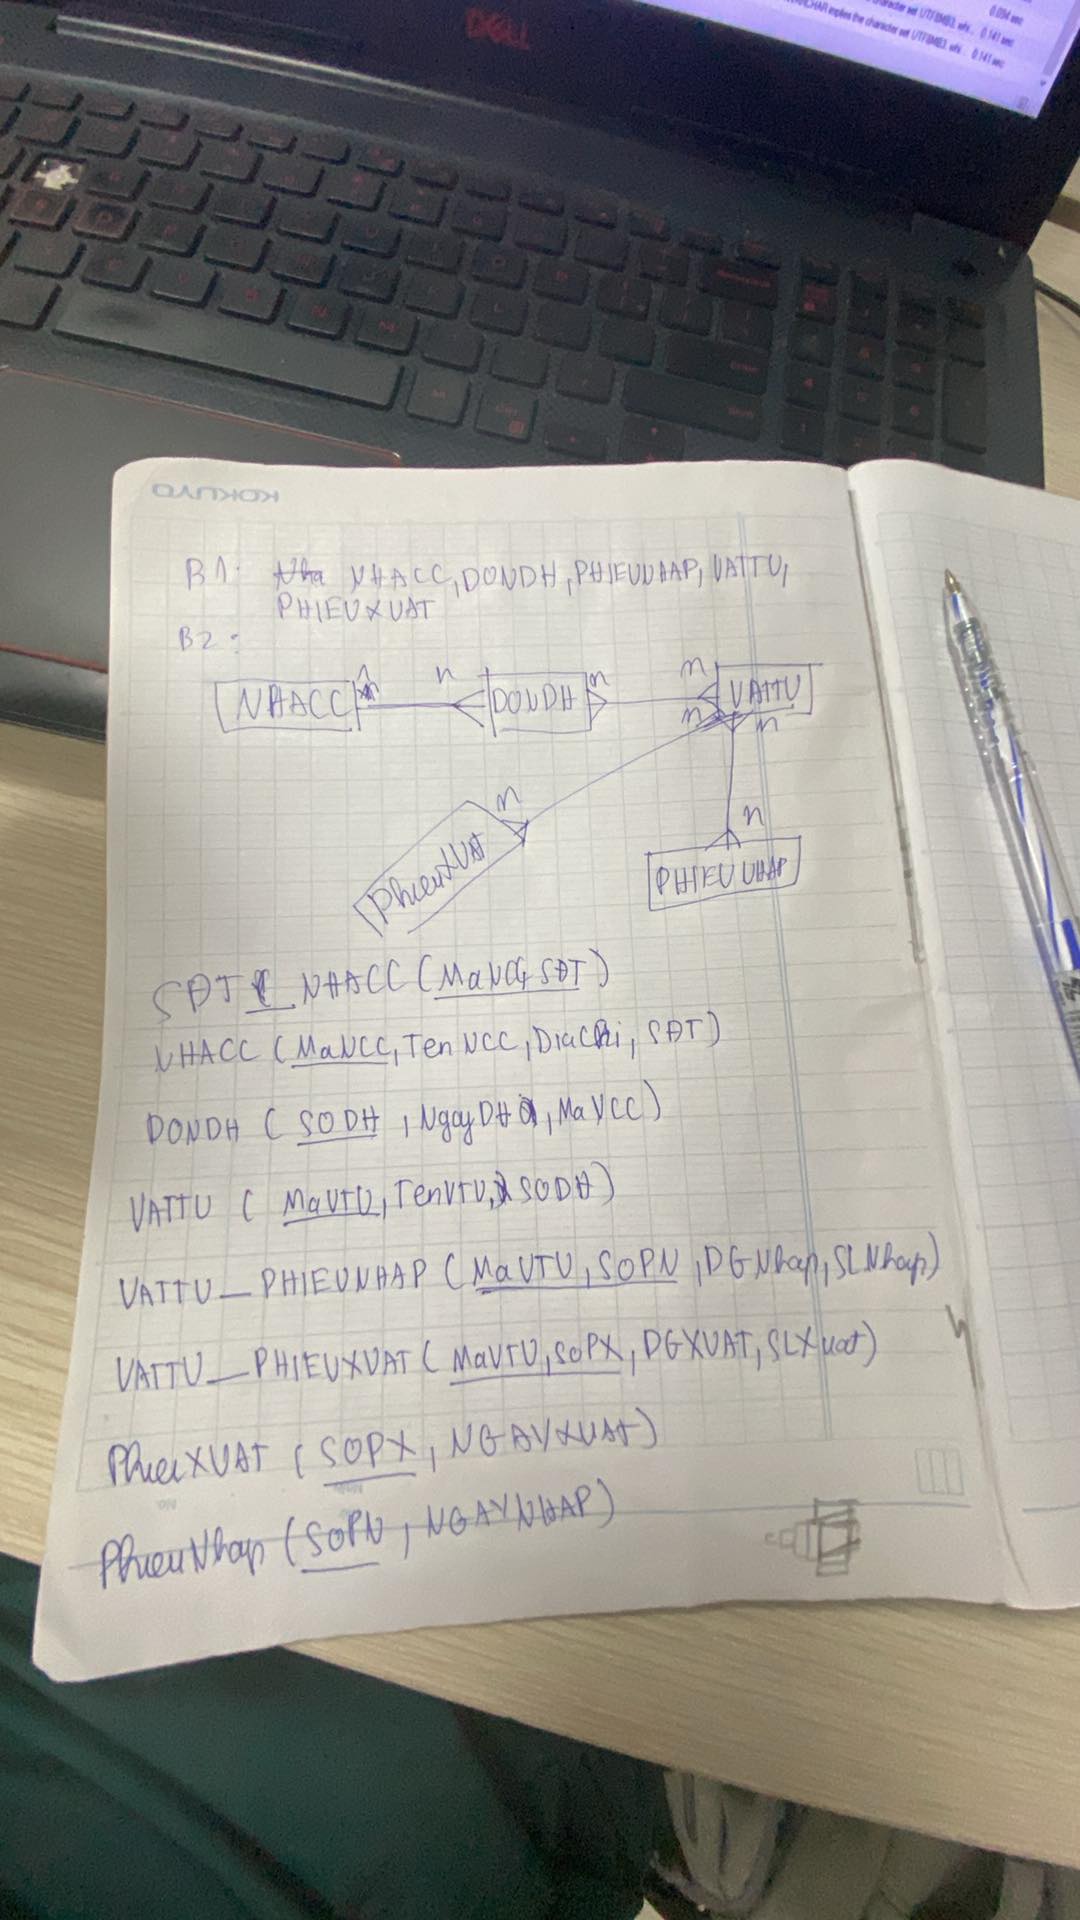 DELL
0.094 sec
VARCHAR implies the character set UTF8MB3, whi... 0.141 sec
character set UTF8MB3, whi... 0.141 sec
KOKUYO
B1: Nha NHACC, DONDH, PHIEUNHAP, VATTU,
PHIEUXUAT
B2:
NHACC 1 n DONDH n n VATTU
n n
n n
PhieuXUAT PHIEUNHAP
SĐT_NHACC (MaNCC, SĐT)
NHACC (MaNCC, TenNCC, DiaChi, SĐT)
DONDH (SODH, NgayDH, MaNCC)
VATTU (MaVTU, TenVTU, SODH)
VATTU_PHIEUNHAP (MaVTU, SOPN, DGNhap, SLNhap)
VATTU_PHIEUXUAT (MaVTU, SoPX, DGXUAT, SLXuat)
PhieuXUAT (SOPX, NGAYXUAT)
PhieuNhap (SOPN, NGAYNHAP)